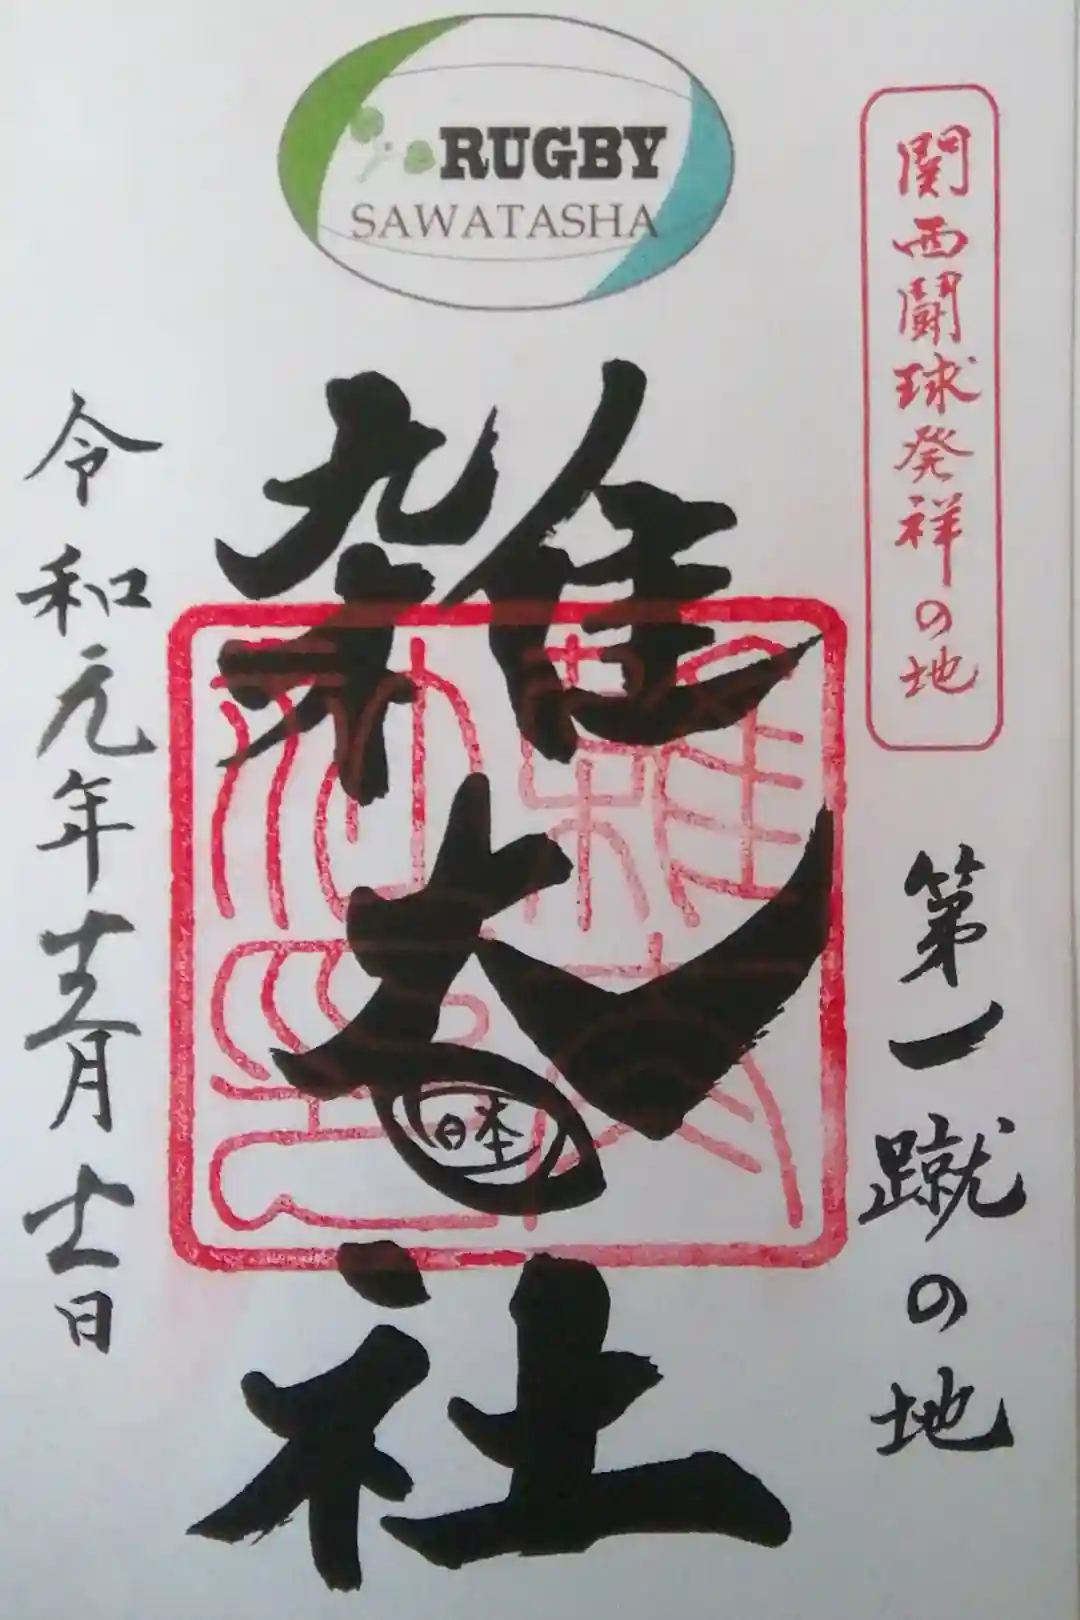 RUGBY
SAWATASHA
関西闘球発祥の地
第一蹴の地
雑太社
日本
令和元年十二月十一日